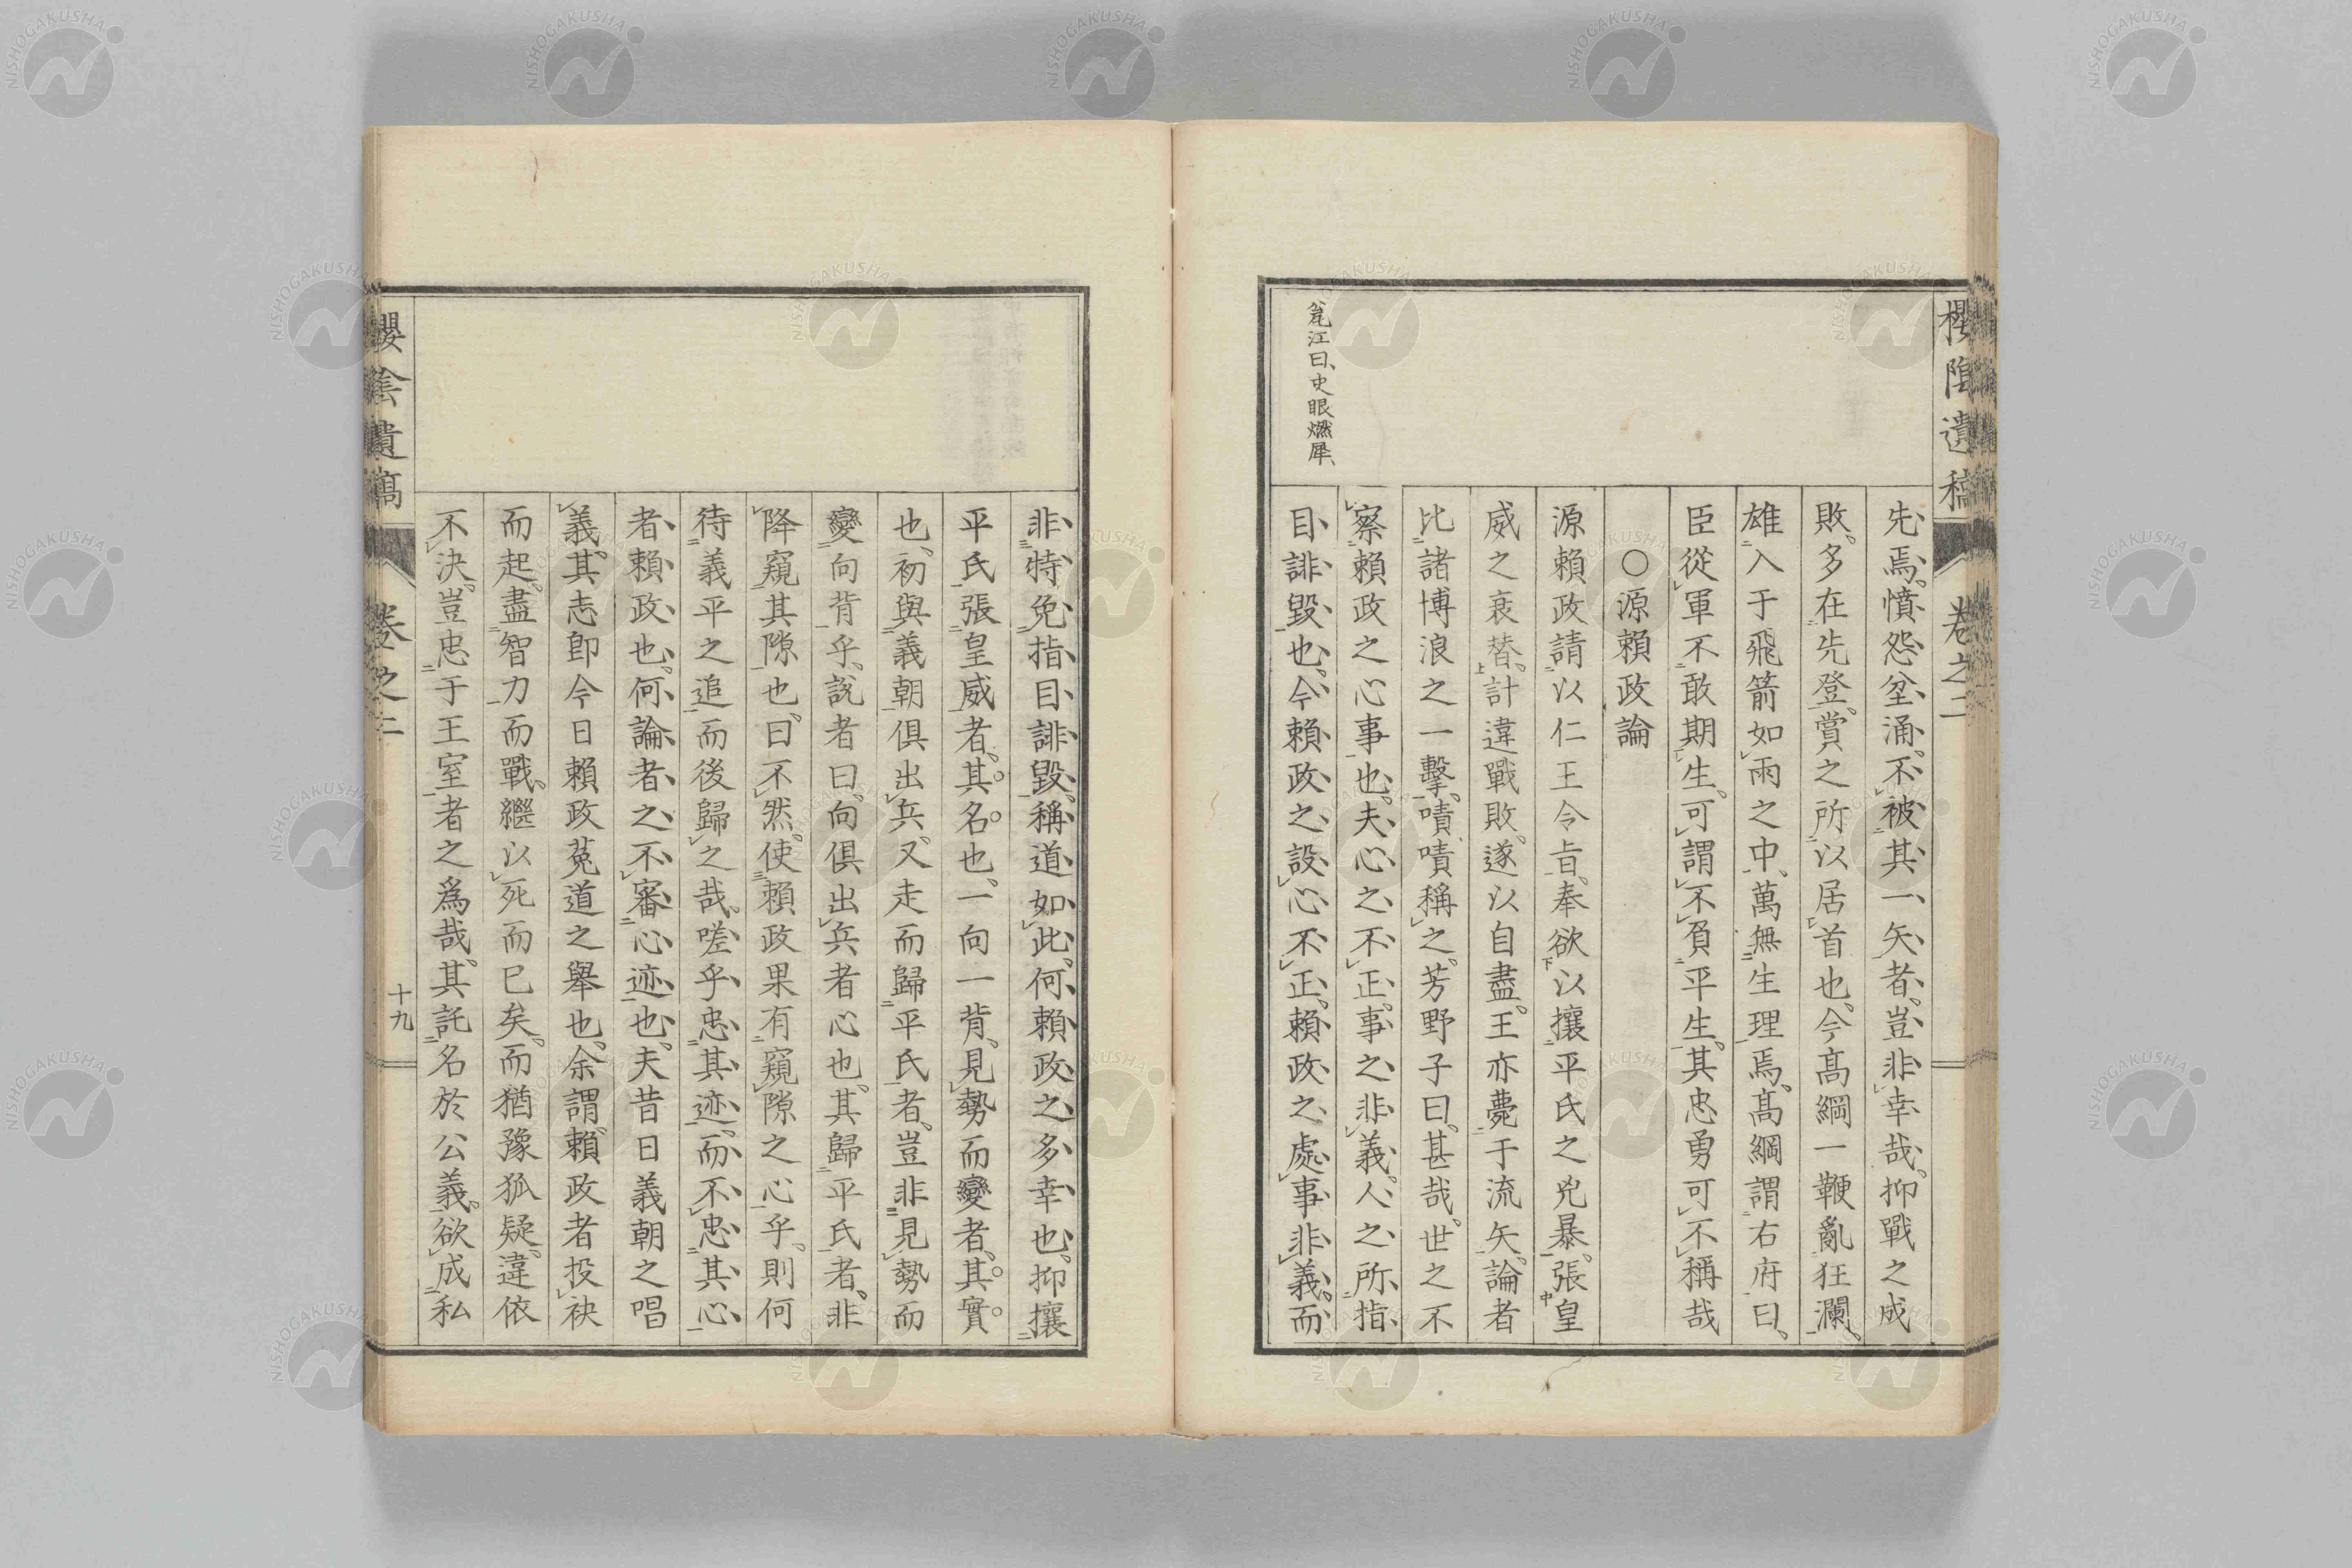 櫻陰遺稿 卷之二
先焉。憤怨坌涌。不被其一矢者。豈非幸哉。抑戰之成
敗。多在先登。賞之所以居首也。今髙綱一鞭亂狂瀾。
雄入于飛箭如雨之中。萬無生理焉。髙綱謂右府曰。
臣從軍不敢期生。可謂不負平生。其忠勇可不稱哉
○源賴政論
源賴政請以仁王令旨。奉欲以攘平氏之兇暴。張皇
威之衰替。計違戰敗。遂以自盡。王亦薨于流矢。論者
比諸博浪之一擊。嘖嘖稱之。芳野子曰。甚哉。世之不
察賴政之心事也。夫心之不正。事之非義。人之所指
目誹毀也。今賴政之設心不正。賴政之處事非義。而
瓮江曰、史眼燃犀、
非特免指目誹毀。稱道如此。何賴政之多幸也。抑攘
平氏張皇威者。其名也、一向一背。見勢而變者。其實
也、初與義朝俱出兵。又走而歸平氏者。豈非見勢而
變向背乎。說者曰。向俱出兵者心也。其歸平氏者。非
降窺其隙也。曰。不然。使賴政果有窺隙之心乎。則何
待義平之追而後歸之哉。嗟乎。忠其迹。而不忠其心
者。賴政也。何論者之不審心迹也。夫昔日義朝之唱
義。其志卽今日賴政菟道之舉也。余謂賴政者投袂
而起。盡智力而戰。繼以死而已矣。而猶豫狐疑。違依
不決。豈忠于王室者之爲哉。其託名於公義。欲成私
櫻陰遺稿 卷之二 十九